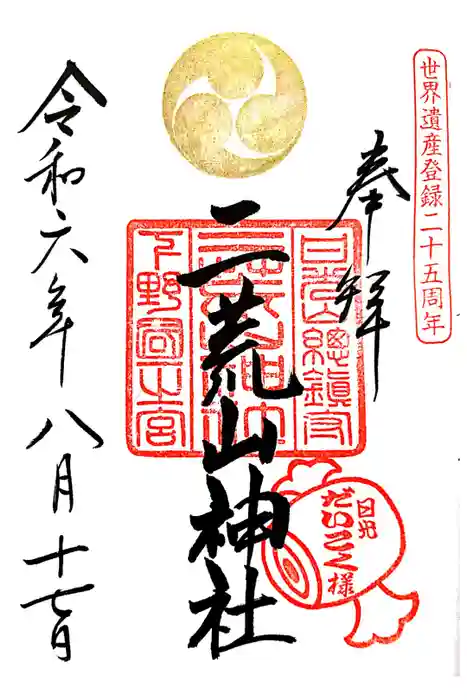 世界遺産登録二十五周年
奉拝
二荒山神社
日光山總鎮守
二荒山神社
下野國一之宮
日光
だいこく様
令和六年八月十七日